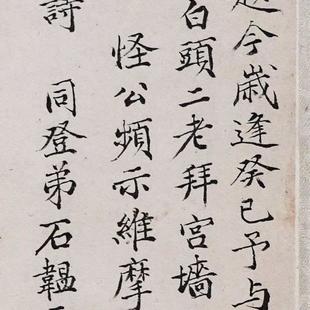 今歲逢癸巳予与
白頭二老拜宮墻
怪公頻示維摩
詩　同登弟石韞